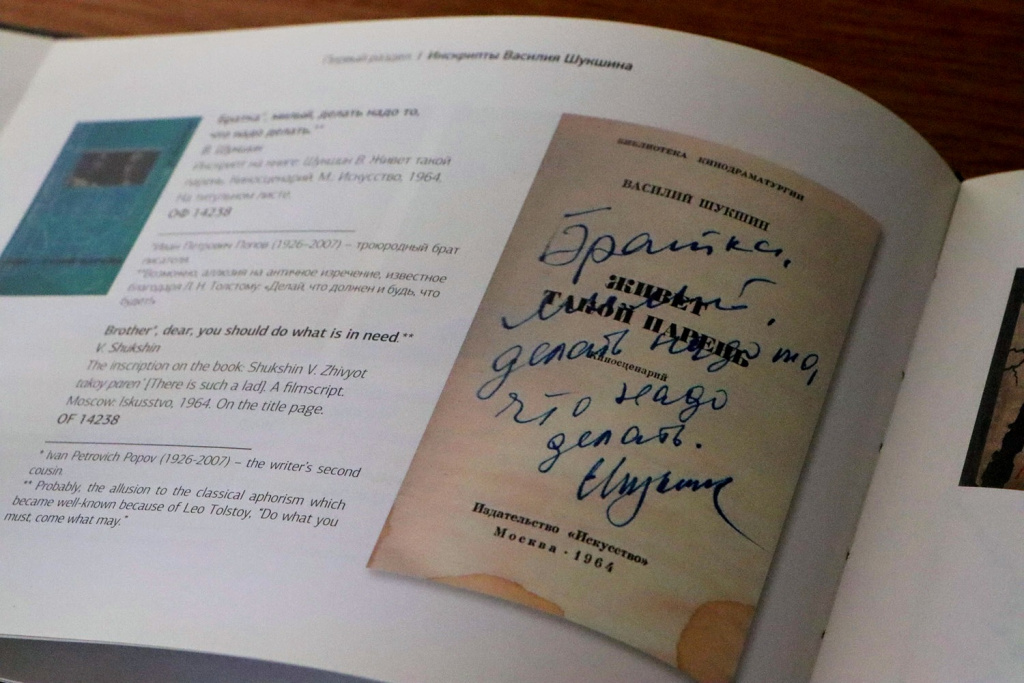 Первый раздел / Инскрипты Василия Шукшина
Братка*, милый, делать надо то,
что надо делать.**
В. Шукшин
Инскрипт на книге: Шукшин В. Живет такой
парень. Киносценарий. М.: Искусство, 1964.
На титульном листе.
ОФ 14238
*Иван Петрович Попов (1926-2007) – троюродный брат
писателя.
**Возможно, аллюзия на античное изречение, известное
благодаря Л.Н. Толстому: «Делай, что должен и будь, что
будет»
Brother*, dear, you should do what is in need.**
V. Shukshin
The inscription on the book: Shukshin V. Zhivyot
takoy paren' [There is such a lad]. A filmscript.
Moscow: Iskusstvo, 1964. On the title page.
OF 14238
* Ivan Petrovich Popov (1926-2007) – the writer's second
cousin.
** Probably, the allusion to the classical aphorism which
became well-known because of Leo Tolstoy, "Do what you
must, come what may."
БИБЛИОТЕКА КИНОДРАМАТУРГИИ
ВАСИЛИЙ ШУКШИН
Братка,
ЖИВЕТ
милый,
ТАКОЙ ПАРЕНЬ
делать надо то,
Киносценарий
что надо
делать.
Шукшин
Издательство «Искусство»
Москва · 1964